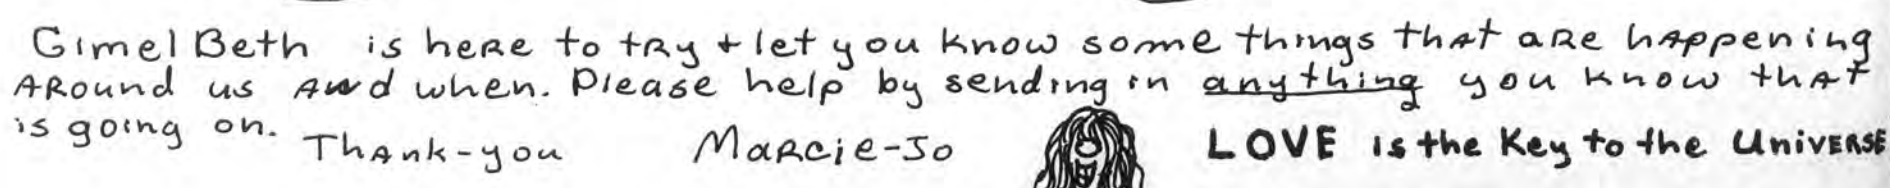 Gimel Beth is heRe to tRy + let you know some things thAt aRe hAppening
ARound us And when. Please help by sending in anything you know thAt
is going on.
ThAnk-you MaRcie-Jo LOVE is the Key to the UniVERSE